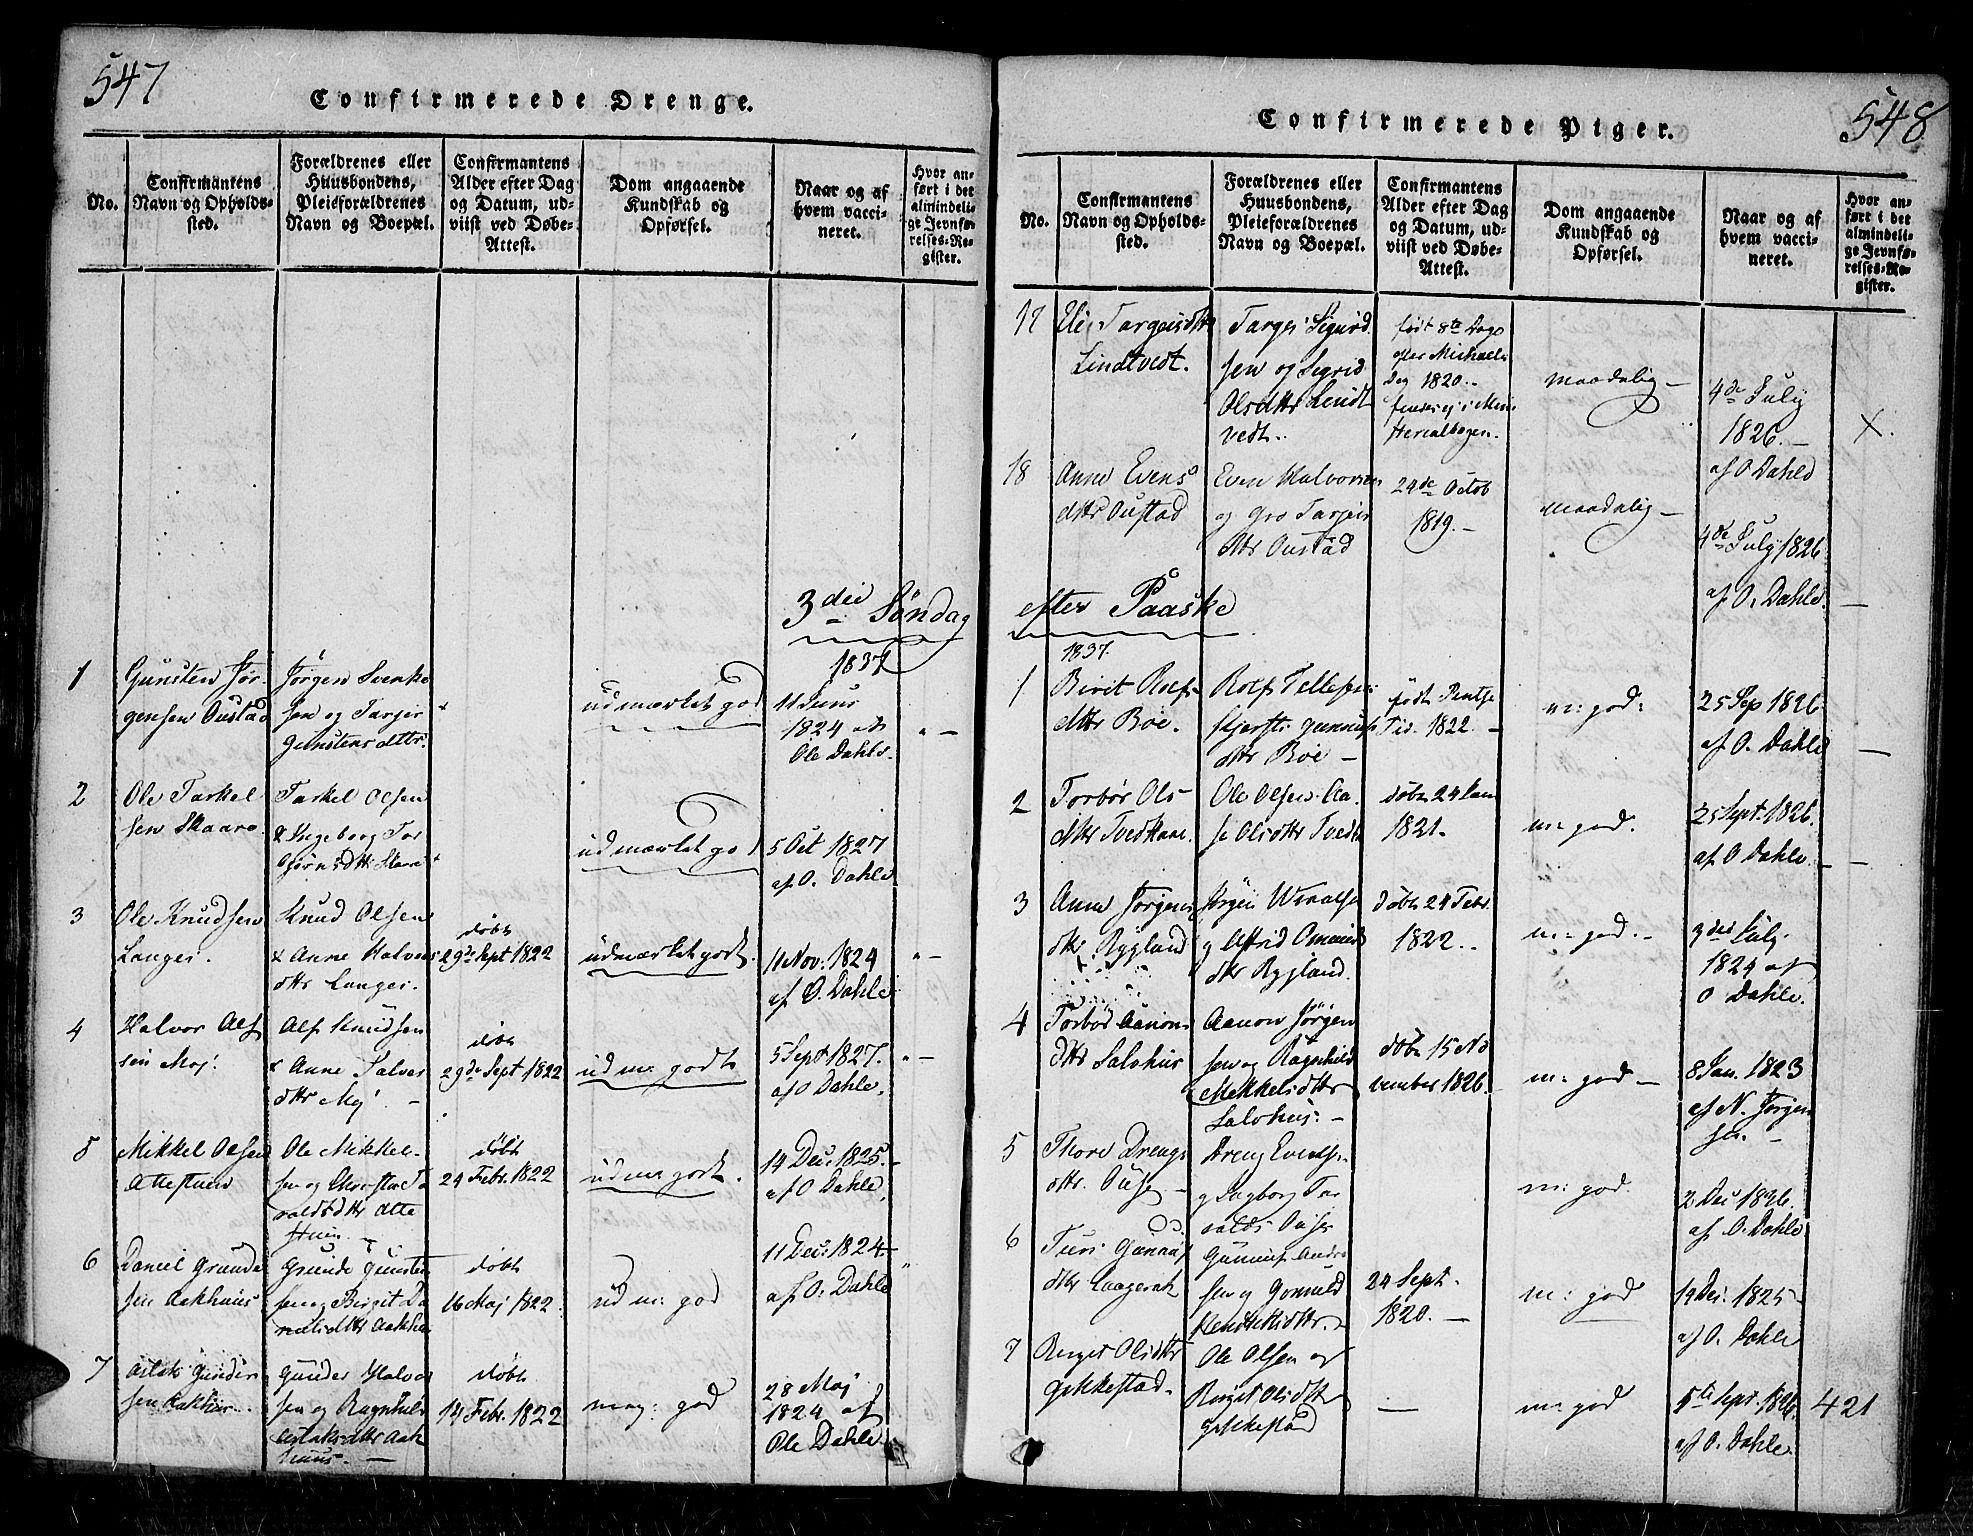 547
Confirmerede Drenge.
No.
Confirmantens
Navn og Opholds-
sted.
Forældrenes eller
Huusbondens,
Pleieforældrenes
Navn og Boepæl.
Confirmantens
Alder efter Dag
og Datum, ud-
viist ved Døbe-
Attest.
Dom angaaende
Kundskab og
Opførsel.
Naar og af
hvem vacci-
neret.
Hvor an-
ført i det
almindeli-
ge Jevnfø-
relses-Re-
gister.
3die Søndag
1837
1
Gunsten Jør-
gensen Oustad
Jørgen Svenke
sen og Targer
Gunstensdttr.
udmærket god
11 Juni
1824 af
Ole Dahle.
2
Ole Tarkel
sen Skaare
Tarkel Olsen
& Ingeborg Tor
bjørnsdttr Skare
udmærket god
5 Oct 1827
af O. Dahle
3
Ole Knudsen
Langei.
Knud Olsen
& Anne Halvors
dttr Langei.
døbt
29de Sept 1822
udmærket godt.
11 Nov. 1824
af O. Dahle
4
Halvor Alf
sen Moj.
Alf Knudsen
& Anne Salves
dttr Moj. —
døbt
29de Sept 1822
udm: godt
5 Sept 1827.
af O Dahle.
5
Mikkel Olsen
Ole Mikkel-
sen og
raldsdttr Atte
døbt
24 Febr. 1822
udm: godt.
14 Dec: 1825.
af O Dahle.
6
Daniel Grunde
sen Aakhuus
Grunde Gunsten
sen og Birgit Da
nielsdttr Aakhu
døbt
16 Maj 1822.
udm: god
11 Dec: 1824
af O. Dahle
7
Aslak Gunder
sen Aakhus
Gunder Halvor
sen og Ragnhild
Aslaksdttr Aak
huus. —
døbt
14 Febr. 1822
meg: god
28 Maj
1824 af
Ole Dahle
548
Confirmerede Piger.
No.
Confirmantens
Navn og Opholds-
sted.
Forældrenes eller
Huusbondens,
Pleieforældrenes
Navn og Boepæl.
Confirmantens
Alder efter Dag
og Datum, ud-
viist ved Døbe-
Attest.
Dom angaaende
Kundskab og
Opførsel.
Naar og af
hvem vacci-
neret.
Hvor an-
ført i det
almindeli-
ge Jevnfø-
relses-Re-
gister.
17
Targeisdttr
Lindtvedt.
Targei Sigurd
sen og Sigrid
Olsdttr Lindt
vedt.
født 8te Dage
efter Michaeli
Dag 1820.-
findes ej i Mini
sterialbogen.
maadelig —
4de July
1826. —
af O Dahle
X.
18
Anne Evens
dttr Oustad
Even Halvorsen
og Gro Targeis
dttr Oustad
24de Octob
1819. —
maadelig —
4de July 1826
af O. Dahle.
efter Paaske
1837.
1
Birit Rolfs-
dttr Boe.
Rolf Tellefsen
dttr Boe —
født Pintse
Tid. 1822. —
m: god:
25 Sep 1826.
af O. Dahle
2
Torbør Ols-
dttr
Ole Olsen Aa-
se Olsdttr Tvedt
døbt 24 Jan
1821.
m: god.
25 Sept. 1826.
af O Dahle.
3
Anne Jørgens
dttr Rygland
Jørgen
og Astrid Omunds
dttr Rygland.
døbt 24 Febr.
1822. -
m: god.
3die July.
1824 af
O Dahle.
4
Torbør Aanons
dttr Salohus
Aanon Jørgen
sen og Ragnhild
Mekkelsdttr
Salohus. —
døbt 15 No
vember 1826.
m: god —
8 Jan. 1823
af N. Jørgen
sen. —
5
Thore Drengs
dttr. Ouse —
Dreng Evense
og Ingborg Tar
alds Ouse
m: god.
2 Dec 1826.
af O. Dahle
6
Turi Gunnuf
dttr
Gunnuf Andre
sen og Gonuld
24 Sept.
1820. —
m: god
19 Dec: 1825
af O. Dahle
7
Birgit Olsdttr
Gekkestad.
Ole Olsen og
Birgit Olsdttr
Gekkestad
—
m: god
5te Sept. 1826.
af O. Dahle.
421